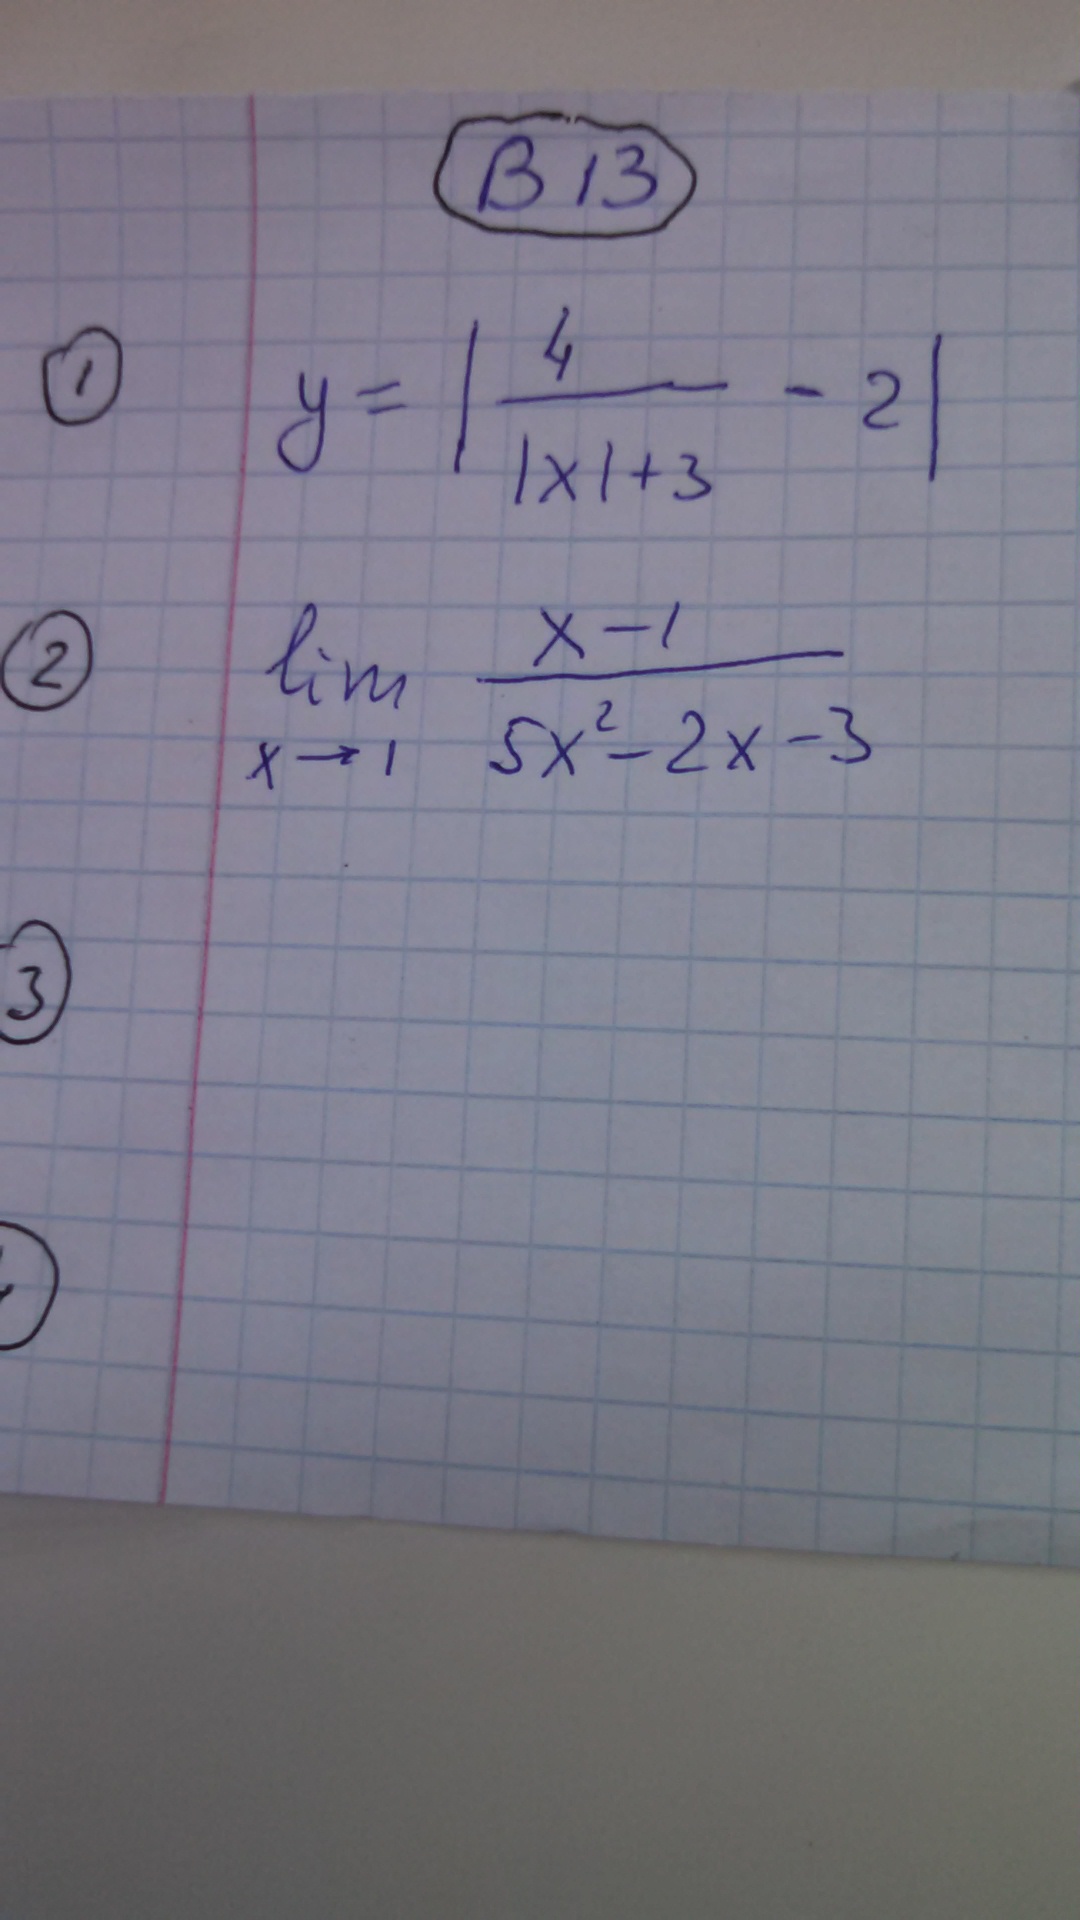 В 13
1 y = | 4/(|x|+3) - 2 |
2 lim x→1 (x-1)/(5x²-2x-3)
3
4